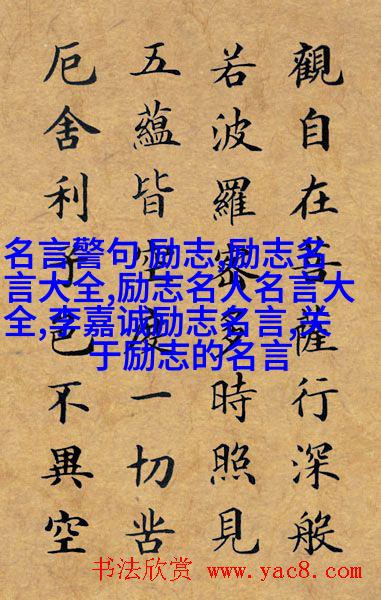 觀自在菩薩行深般
若波羅蜜多時照見
五蘊皆空度一切苦
厄舍利子色不異空
名言警句,励志,励志名
言大全,励志名人名言大
全,李嘉诚励志名言,关
于励志的名言
书法欣赏 www.yac8.com